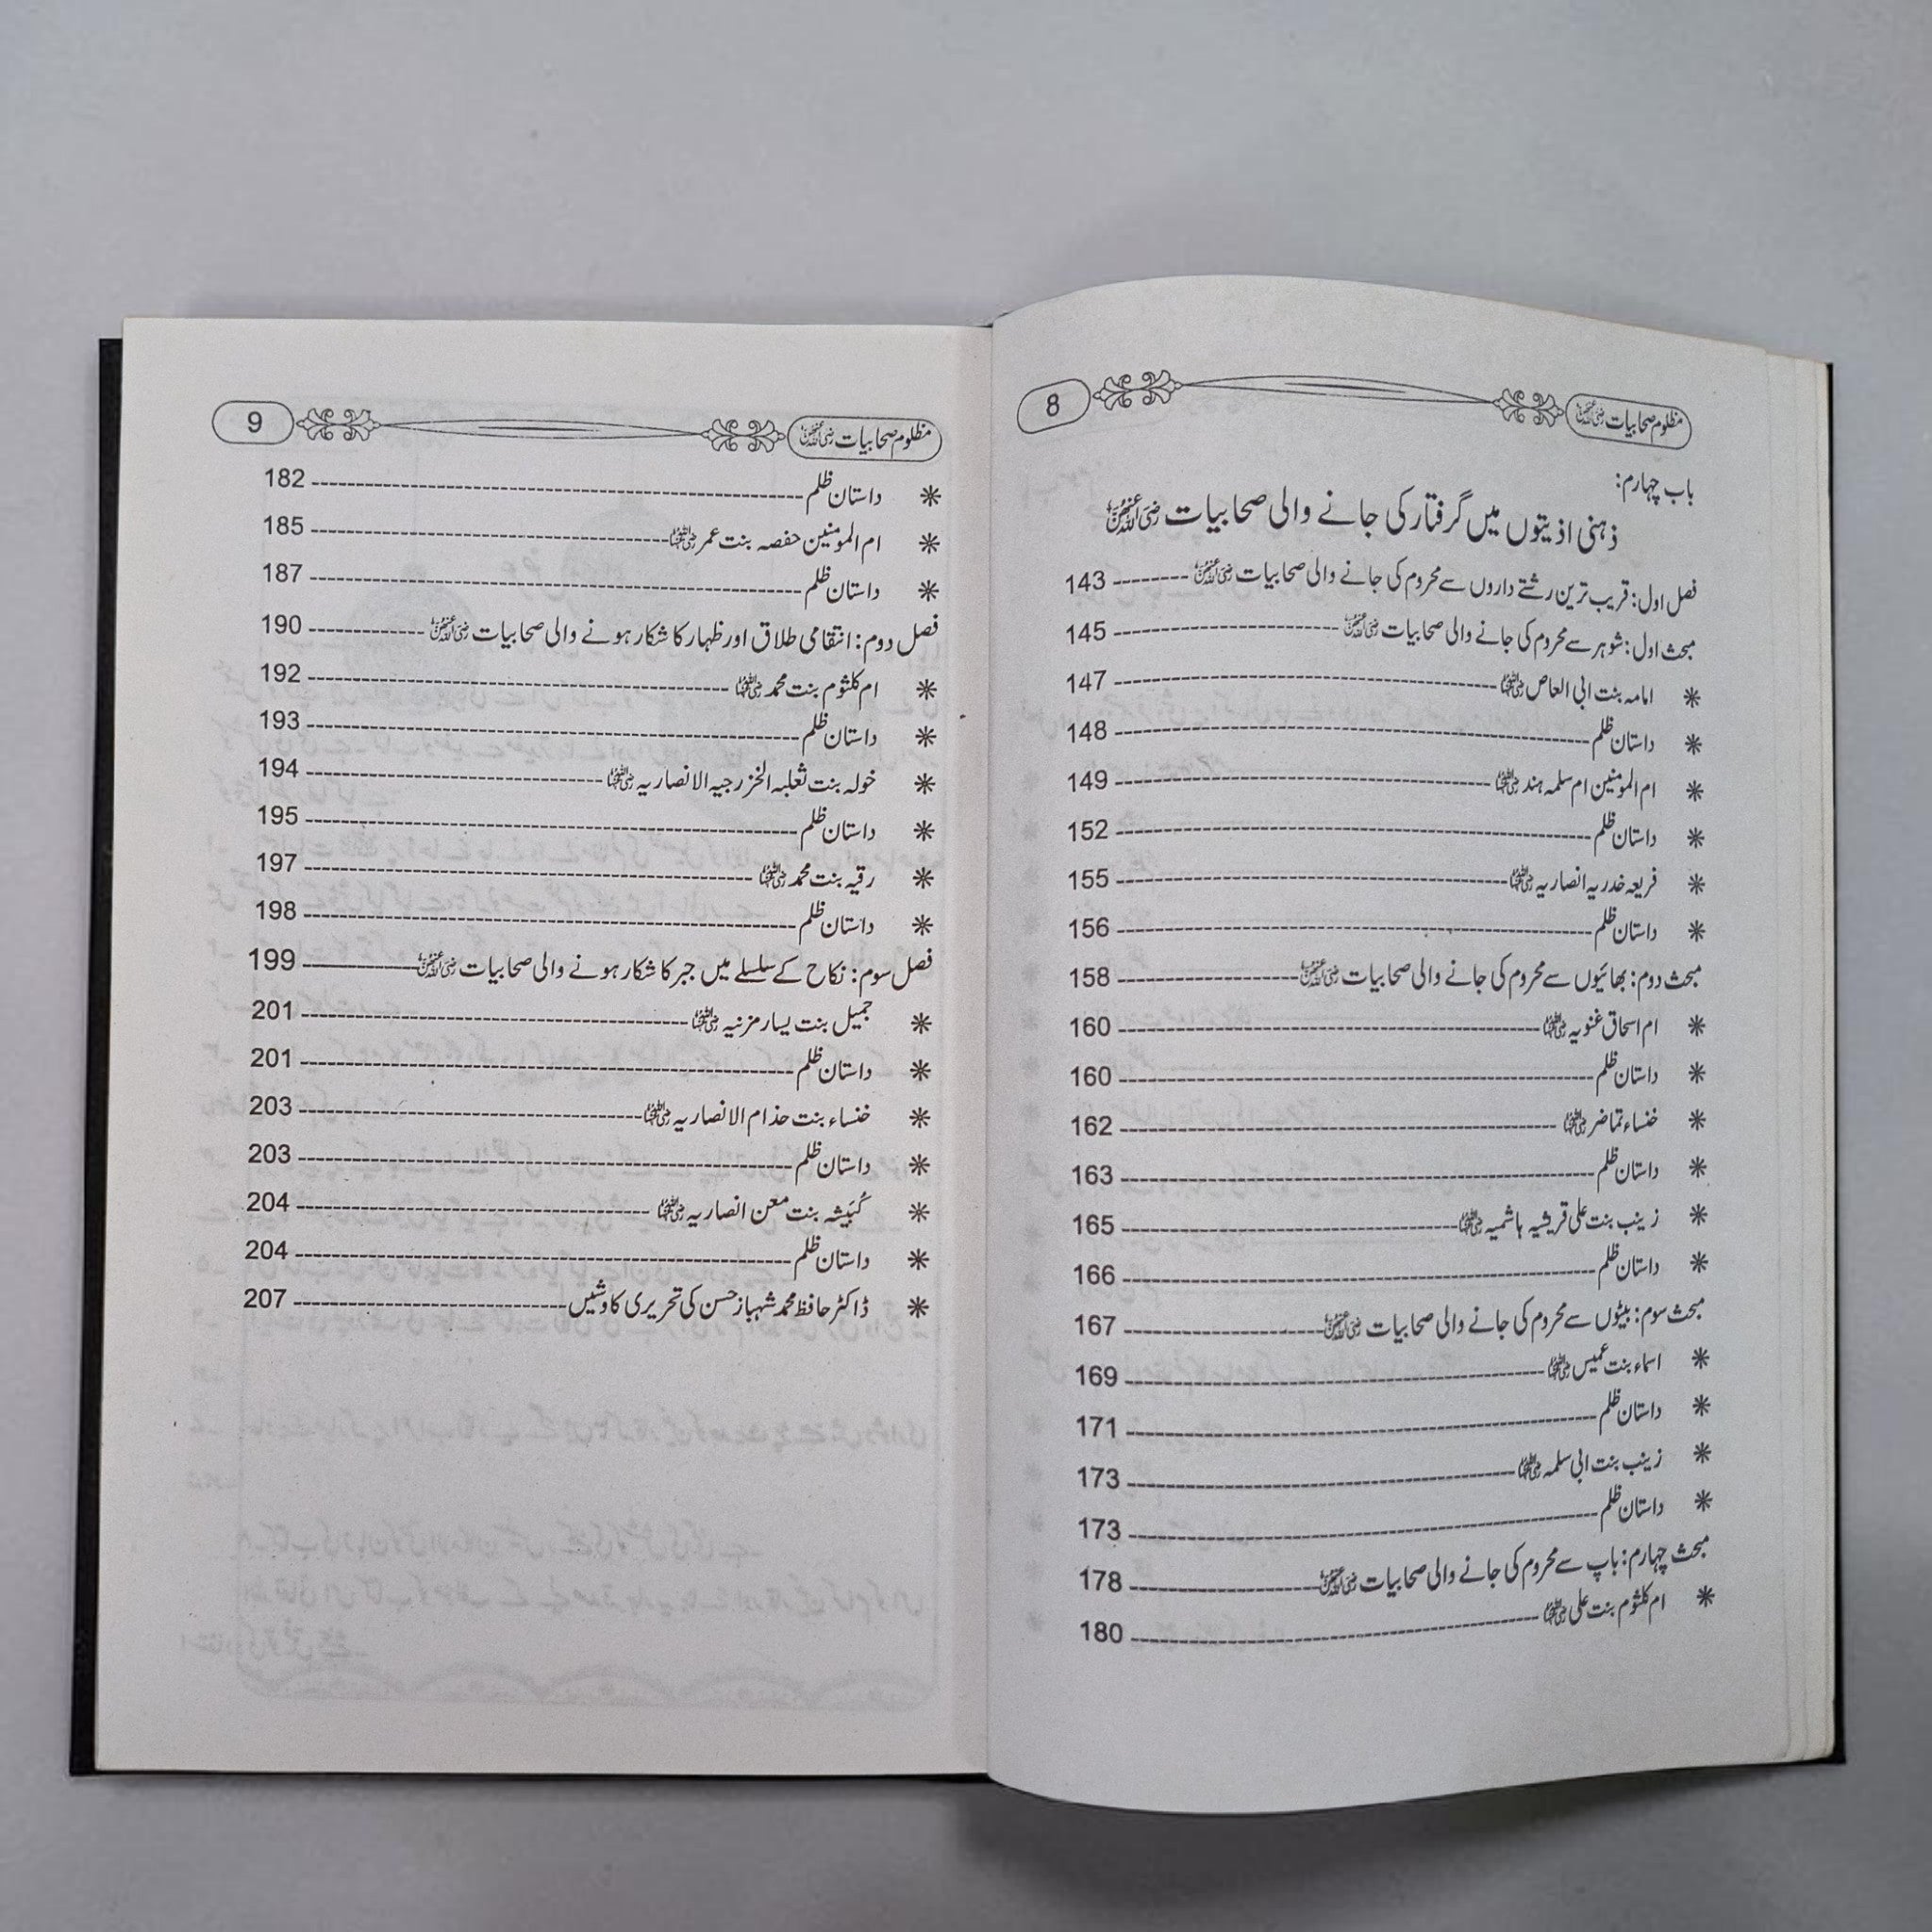 مظلوم صحابیات رضی اللہ عنہن 8
باب چہارم:
ذہنی اذیتوں میں گرفتار کی جانے والی صحابیات رضی اللہ عنہن
فصل اول: قریب ترین رشتے داروں سے محروم کی جانے والی صحابیات رضی اللہ عنہن -------- 143
مبحث اول: شوہر سے محروم کی جانے والی صحابیات رضی اللہ عنہن -------- 145
* امامہ بنت ابی العاص رضی اللہ عنہا -------- 147
* داستان ظلم -------- 148
* ام المومنین ام سلمہ ہند رضی اللہ عنہا -------- 149
* داستان ظلم -------- 152
* فریعہ خدریہ انصاریہ رضی اللہ عنہا -------- 155
* داستان ظلم -------- 156
مبحث دوم: بھائیوں سے محروم کی جانے والی صحابیات رضی اللہ عنہن -------- 158
* ام اسحاق غنویہ رضی اللہ عنہا -------- 160
* داستان ظلم -------- 160
* خنساء تماضر رضی اللہ عنہا -------- 162
* داستان ظلم -------- 163
* زینب بنت علی قریشیہ ہاشمیہ رضی اللہ عنہا -------- 165
* داستان ظلم -------- 166
مبحث سوم: بیٹوں سے محروم کی جانے والی صحابیات رضی اللہ عنہن -------- 167
* اسماء بنت عمیس رضی اللہ عنہا -------- 169
* داستان ظلم -------- 171
* زینب بنت ابی سلمہ رضی اللہ عنہا -------- 173
* داستان ظلم -------- 173
مبحث چہارم: باپ سے محروم کی جانے والی صحابیات رضی اللہ عنہن -------- 178
* ام کلثوم بنت علی رضی اللہ عنہا -------- 180
مظلوم صحابیات رضی اللہ عنہن 9
* داستان ظلم -------- 182
* ام المومنین حفصہ بنت عمر رضی اللہ عنہا -------- 185
* داستان ظلم -------- 187
فصل دوم: انتقامی طلاق اور ظہار کا شکار ہونے والی صحابیات رضی اللہ عنہن -------- 190
* ام کلثوم بنت محمد رضی اللہ عنہا -------- 192
* داستان ظلم -------- 193
* خولہ بنت ثعلبہ الخزرجیہ الانصاریہ رضی اللہ عنہا -------- 194
* داستان ظلم -------- 195
* رقیہ بنت محمد رضی اللہ عنہا -------- 197
* داستان ظلم -------- 198
فصل سوم: نکاح کے سلسلے میں جبر کا شکار ہونے والی صحابیات رضی اللہ عنہن -------- 199
* جمیل بنت یسار مزنیہ رضی اللہ عنہا -------- 201
* داستان ظلم -------- 201
* خنساء بنت حذام الانصاریہ رضی اللہ عنہا -------- 203
* داستان ظلم -------- 203
* کُبَیشہ بنت معن انصاریہ رضی اللہ عنہا -------- 204
* داستان ظلم -------- 204
* ڈاکٹر حافظ محمد شہباز حسن کی تحریری کاوشیں -------- 207